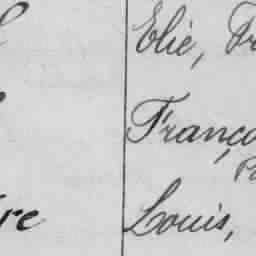 Elie, Fr
Franço
Pa
re Louis,